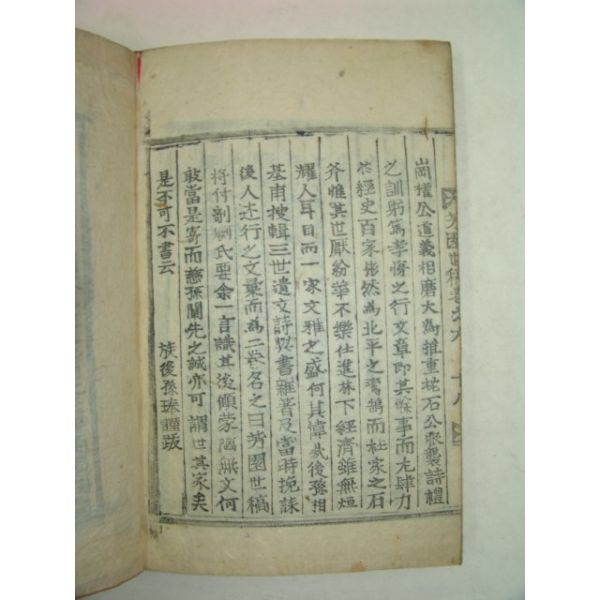 芳園世稿卷之六 十八
崗權公道義相磨大爲推重屹石公聚襲詩禮
之訓躬篤孝悌之行文章即其餘事而尤肆力
於經史百家彬然爲北平之鸞鵠而杜家之石
斧惟其世厭紛華不樂仕進林下經濟雖無烜
耀人耳目而一家文雅之盛何其偉哉後孫相
基甫搜輯三世遺文詩與書雜著及當時挽誄
後人述行之文彙而爲二卷名之曰芳園世稿
將付剞劂氏要余一言識其後傾蒙陋無文何
敢當是寄而慈孫闡先之誠亦可謂世其家矣
是不可不書云
族後孫瑧謹跋